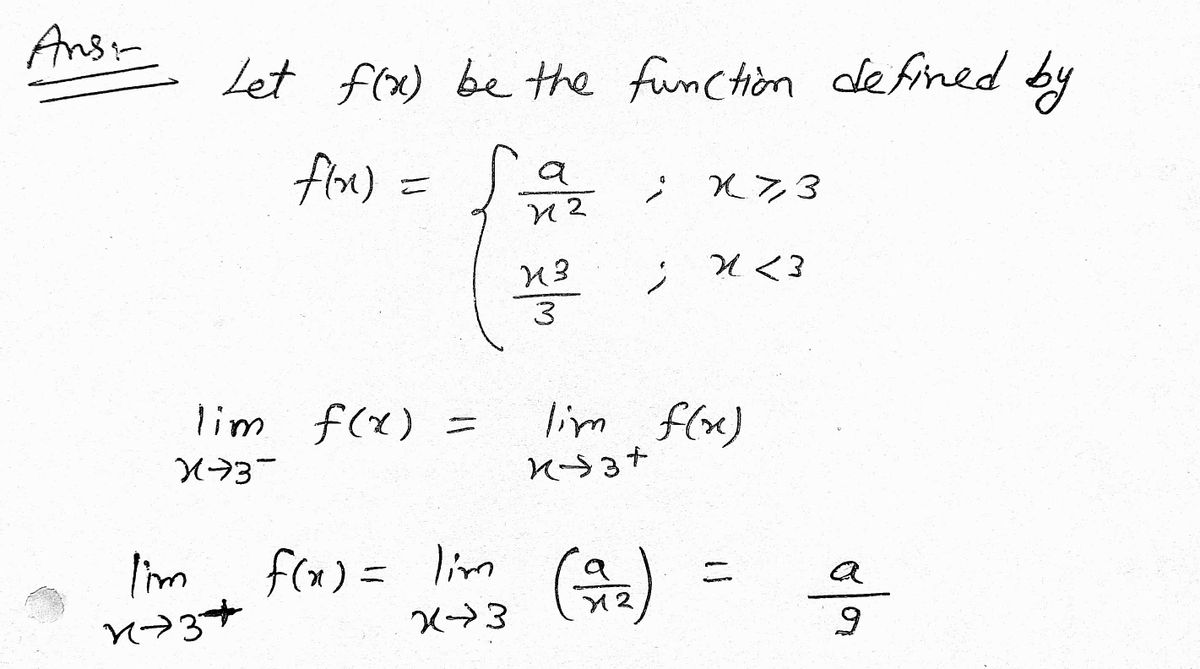 Ans:-
Let f(x) be the function defined by
f(x) = { a/x2 ; x ≥ 3
x3/3 ; x < 3
lim x→3- f(x) = lim x→3+ f(x)
lim x→3+ f(x) = lim x→3 (a/x2) = a/9